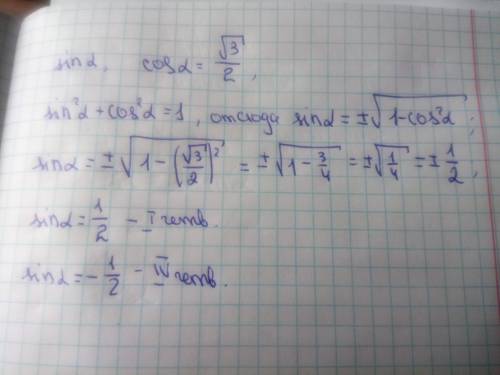 sinα, cosα = √3/2,
sin²α + cos²α = 1, отсюда sinα = ±√(1-cos²α);
sinα = ±√(1-(√3/2)²) = ±√(1-3/4) = ±√(1/4) = ±1/2,
sinα = 1/2 - I четв.
sinα = -1/2 - IV четв.